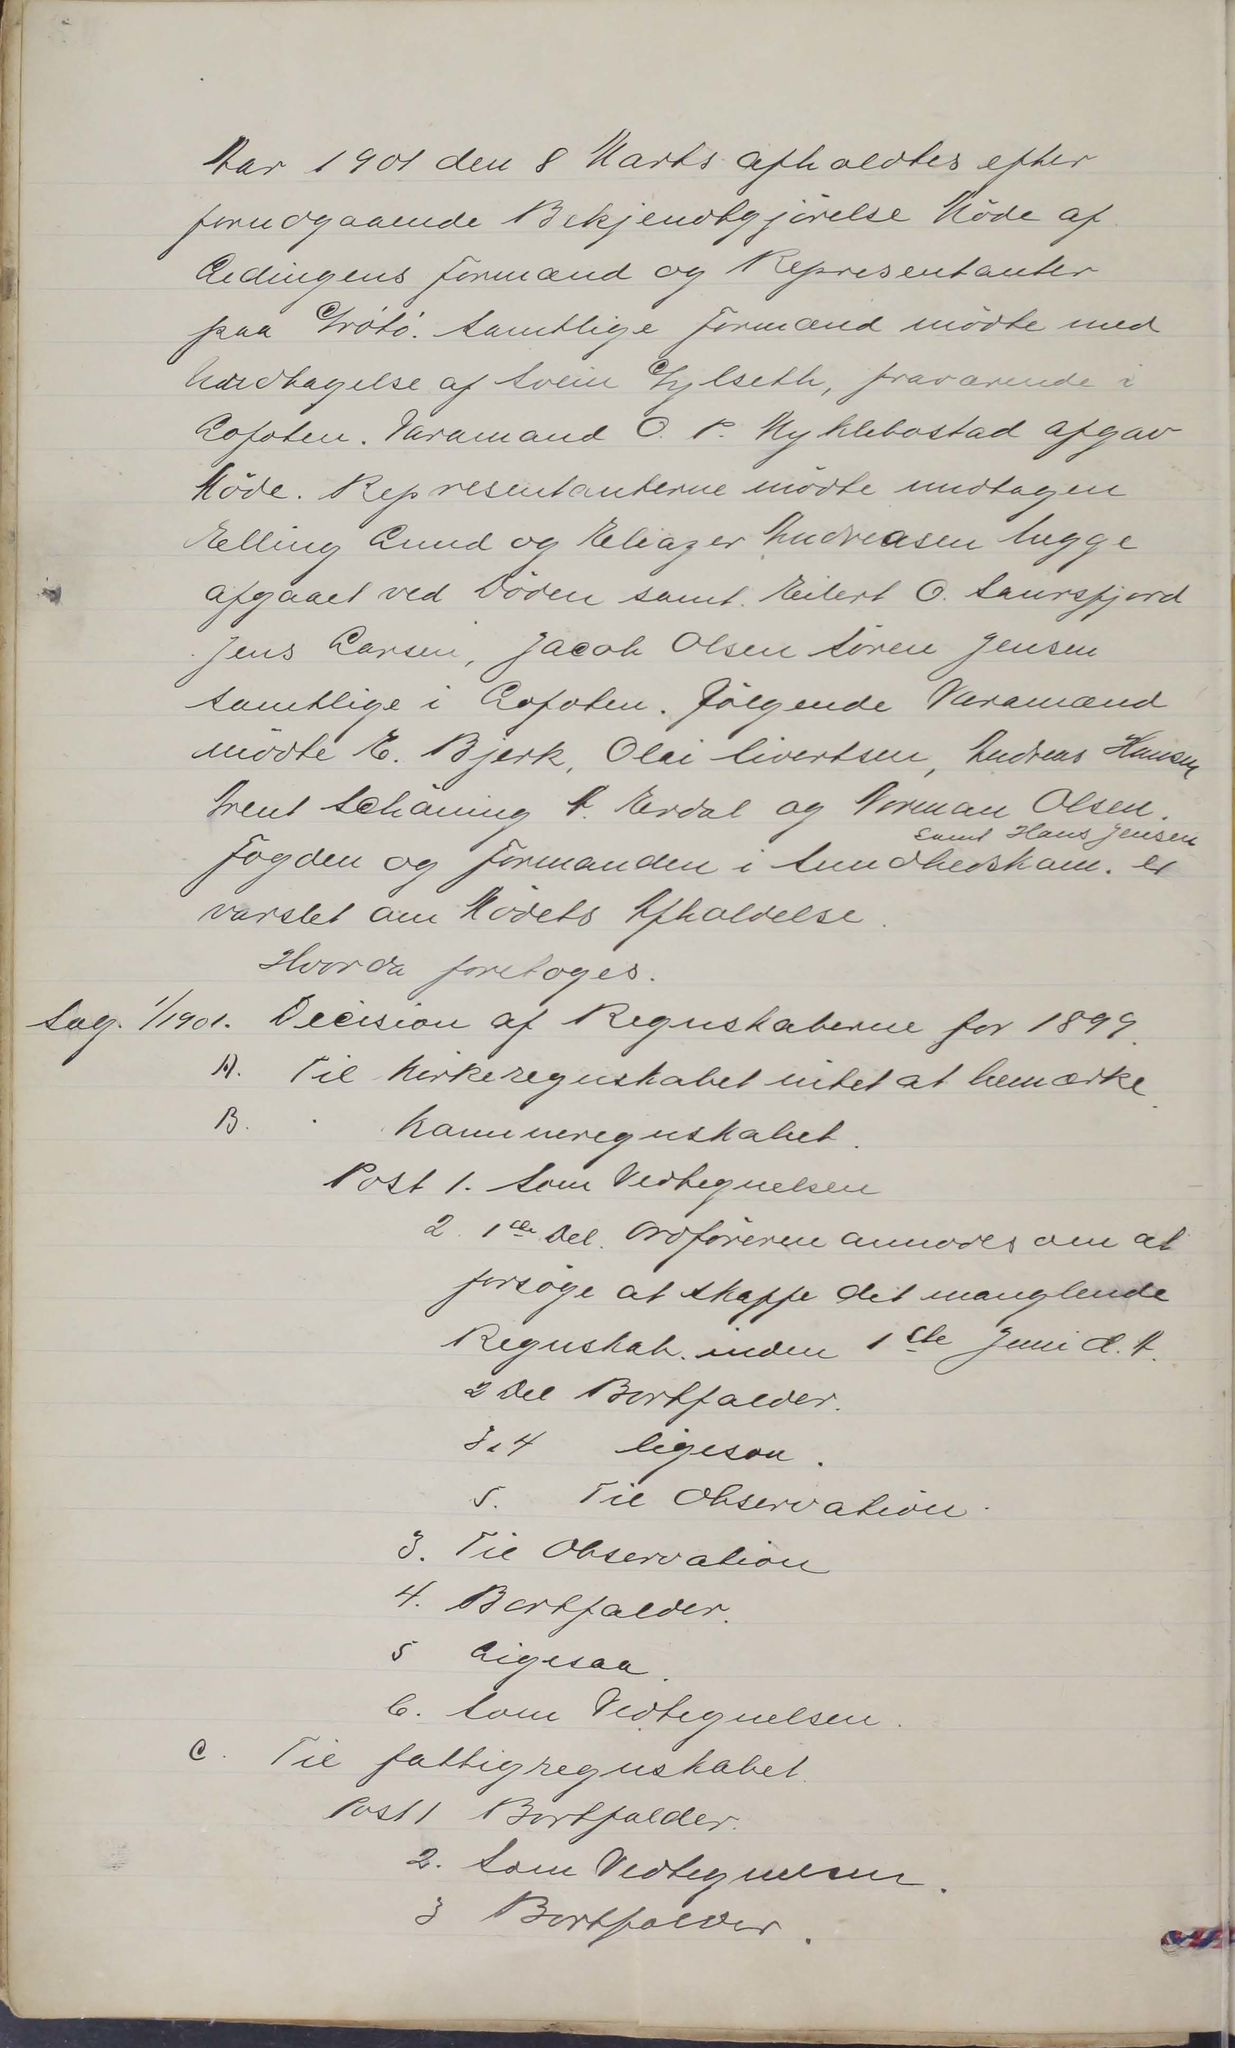 Aar 1901 den 8 Marts afholdtes efter
forudgaaende Bekjendtgjörelse Möde af
Ledingens Formænd og Repræsentanter
paa Gröto. Samtlige Formænd mödte med
Undtagelse af Svein Gylseth, fraværende i
Lofoten. Varamand O. P. Myklebostad afgav
Möde. Repræsentanterne mödte undtagen
Elling Lund og Eliazer Andreasen begge
afgaaet ved Döden samt. Eilert O. Saursfjord
Jens Larsen, Jacob Olsen Sören Jensen
samtlige i Lofoten. Fölgende Varamænd
mödte E. Bjerk, Olai Sivertsen, Andreas Hansen
Brent Schöning A. Erdal og Norman Olsen.
samt Hans Jensen
Fogden og Formanden i Sundhedskom. er
varslet om Mödets Afholdelse.
Hvorda foretoges.
Sag. 1/1901. Decision af Regnskaberne for 1899.
A. Til Kirkeregnskabet intet at bemærke.
B. " Kommuneregnskabet.
Post 1. Som Vedtegnelsen
2. 1ste Del. Ordföreren anmodes om at
forsöge at skaffe det manglende
Regnskab. inden 1ste Juni d. A.
2 Del Bortfalder.
3 & 4 ligesaa.
5. Til Observation.
3. Til Observation
4. Bortfalder.
5 Ligesaa.
6. Som Vedtegnelsen.
C. Til fattigregnskabet.
Post 1 Bortfalder.
2. Som Vedtegnelsen.
3 Bortfalder.